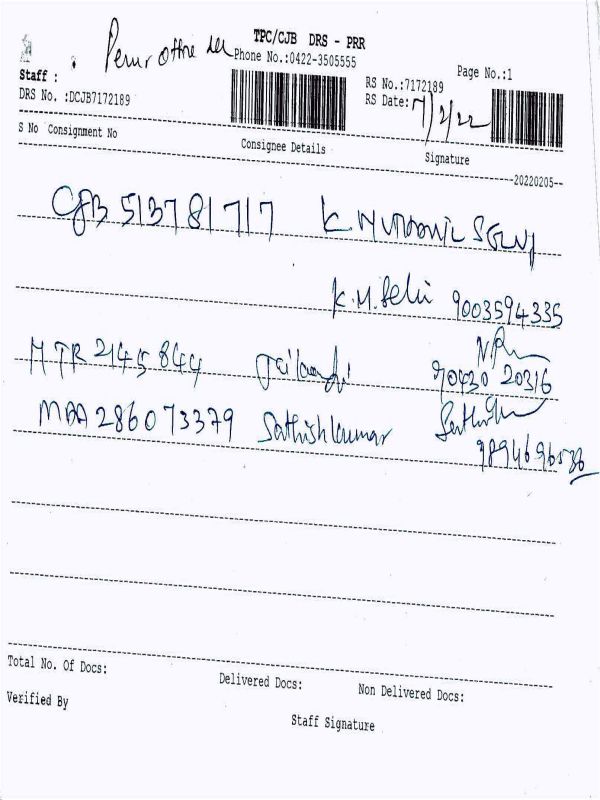 TPC/CJB DRS - PRR
Phone No.:0422-3505555
Page No.:1
Staff :
RS No.:7172189
DRS No. :DCJB7172189
RS Date: 7/2/22
S No Consignment No Consignee Details Signature
20220205
CJB 513781717 K
K.M. Selvi 9003594335
MTR 2145844
90430 20316
MAA 286073379 Sathishkumar
9894696536
Total No. Of Docs: Delivered Docs: Non Delivered Docs:
Verified By Staff Signature